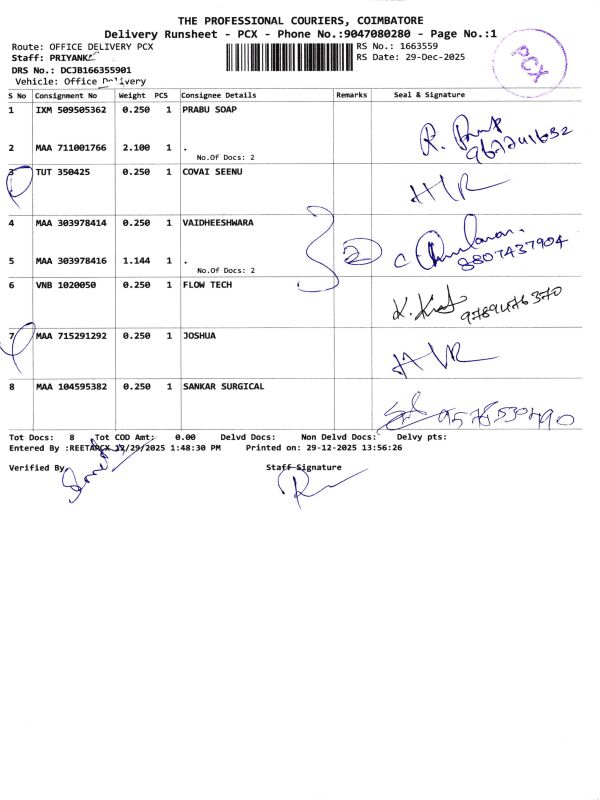 THE PROFESSIONAL COURIERS, COIMBATORE
Delivery Runsheet - PCX - Phone No.:9047080280 - Page No.:1
Route: OFFICE DELIVERY PCX
RS No.: 1663559
Staff: PRIYANKA
RS Date: 29-Dec-2025
PCX
DRS No.: DCJB166355901
Vehicle: Office Delivery
S No Consignment No Weight PCS Consignee Details Remarks Seal & Signature
1 IXM 509505362 0.250 1 PRABU SOAP
2 MAA 711001766 2.100 1 .
No.Of Docs: 2
3 TUT 350425 0.250 1 COVAI SEENU
4 MAA 303978414 0.250 1 VAIDHEESHWARA
2
8807437904
5 MAA 303978416 1.144 1 .
No.Of Docs: 2
6 VNB 1020050 0.250 1 FLOW TECH
7 MAA 715291292 0.250 1 JOSHUA
8 MAA 104595382 0.250 1 SANKAR SURGICAL
Tot Docs: 8 Tot COD Amt: 0.00 Delvd Docs: Non Delvd Docs: Delvy pts:
Entered By :REETAPCX 12/29/2025 1:48:30 PM Printed on: 29-12-2025 13:56:26
Verified By
Staff Signature